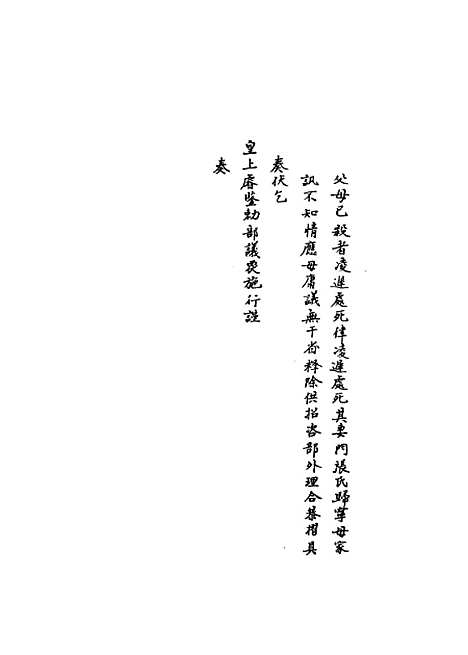 父母已殺者凌遲處死律凌遲處死其妻門張氏歸寧母家
訊不知情應毋庸議無干省釋除供招咨部外理合恭摺具
奏伏乞
皇上睿鑒勅部議覆施行謹
奏